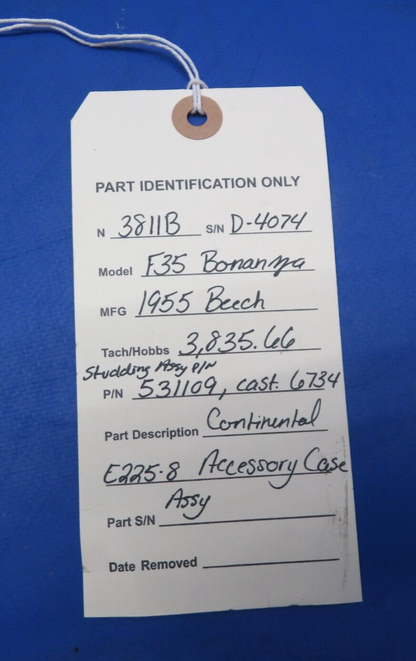 PART IDENTIFICATION ONLY
N 3811B S/N D-4074
Model F35 Bonanza
MFG 1955 Beech
Tach/Hobbs 3,835.66
Studding Assy P/N
P/N 531109, cast. 6734
Part Description Continental
E225-8 Accessory Case
Assy
Part S/N
Date Removed